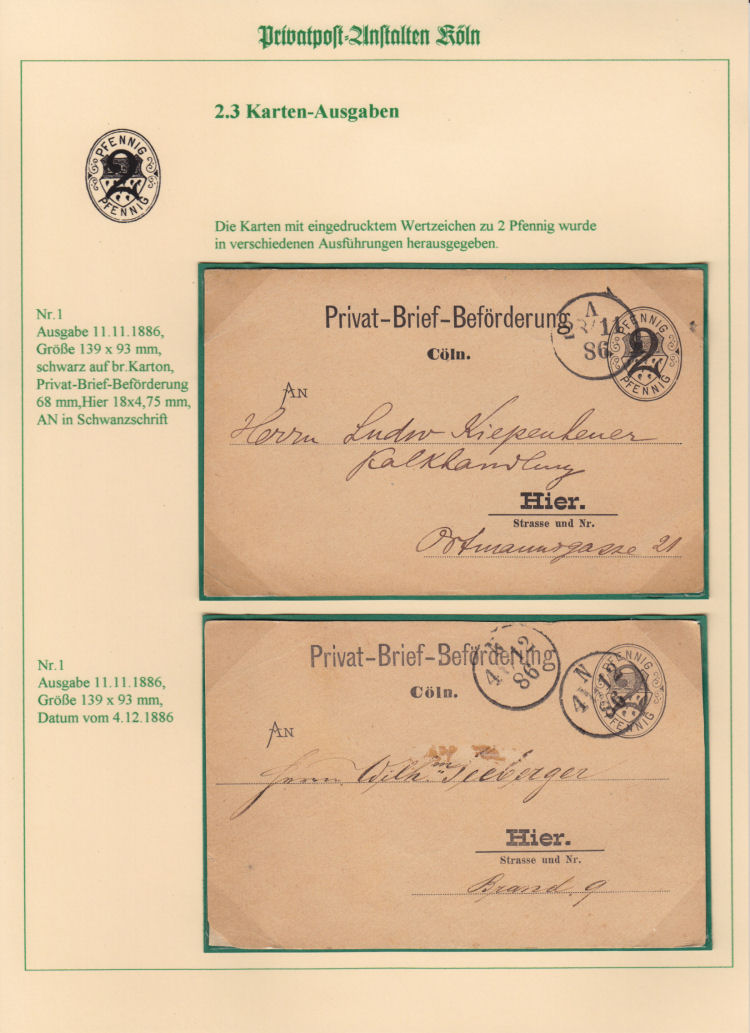 Privatpost-Anstalten Köln
2.3 Karten-Ausgaben
PFENNIG
2
PFENNIG
Die Karten mit eingedrucktem Wertzeichen zu 2 Pfennig wurde
in verschiedenen Ausführungen herausgegeben.
Nr.1
Ausgabe 11.11.1886,
Größe 139 x 93 mm,
schwarz auf br.Karton,
Privat-Brief-Beförderung
68 mm,Hier 18x4,75 mm,
AN in Schwanzschrift
Privat-Brief-Beförderung
Cöln.
A
11
86
PFENNIG
2
PFENNIG
AN
Herrn Ludw Kiepenheuer
Kalkhandlung
Hier.
Strasse und Nr.
Ortmannsgasse 21
Nr.1
Ausgabe 11.11.1886,
Größe 139 x 93 mm,
Datum vom 4.12.1886
Privat-Brief-Beförderung
Cöln.
N
4 12
86
N
4 12
86
PFENNIG
PFENNIG
AN
Herrn Wilhm Seeberger
Hier.
Strasse und Nr.
Brand. 9